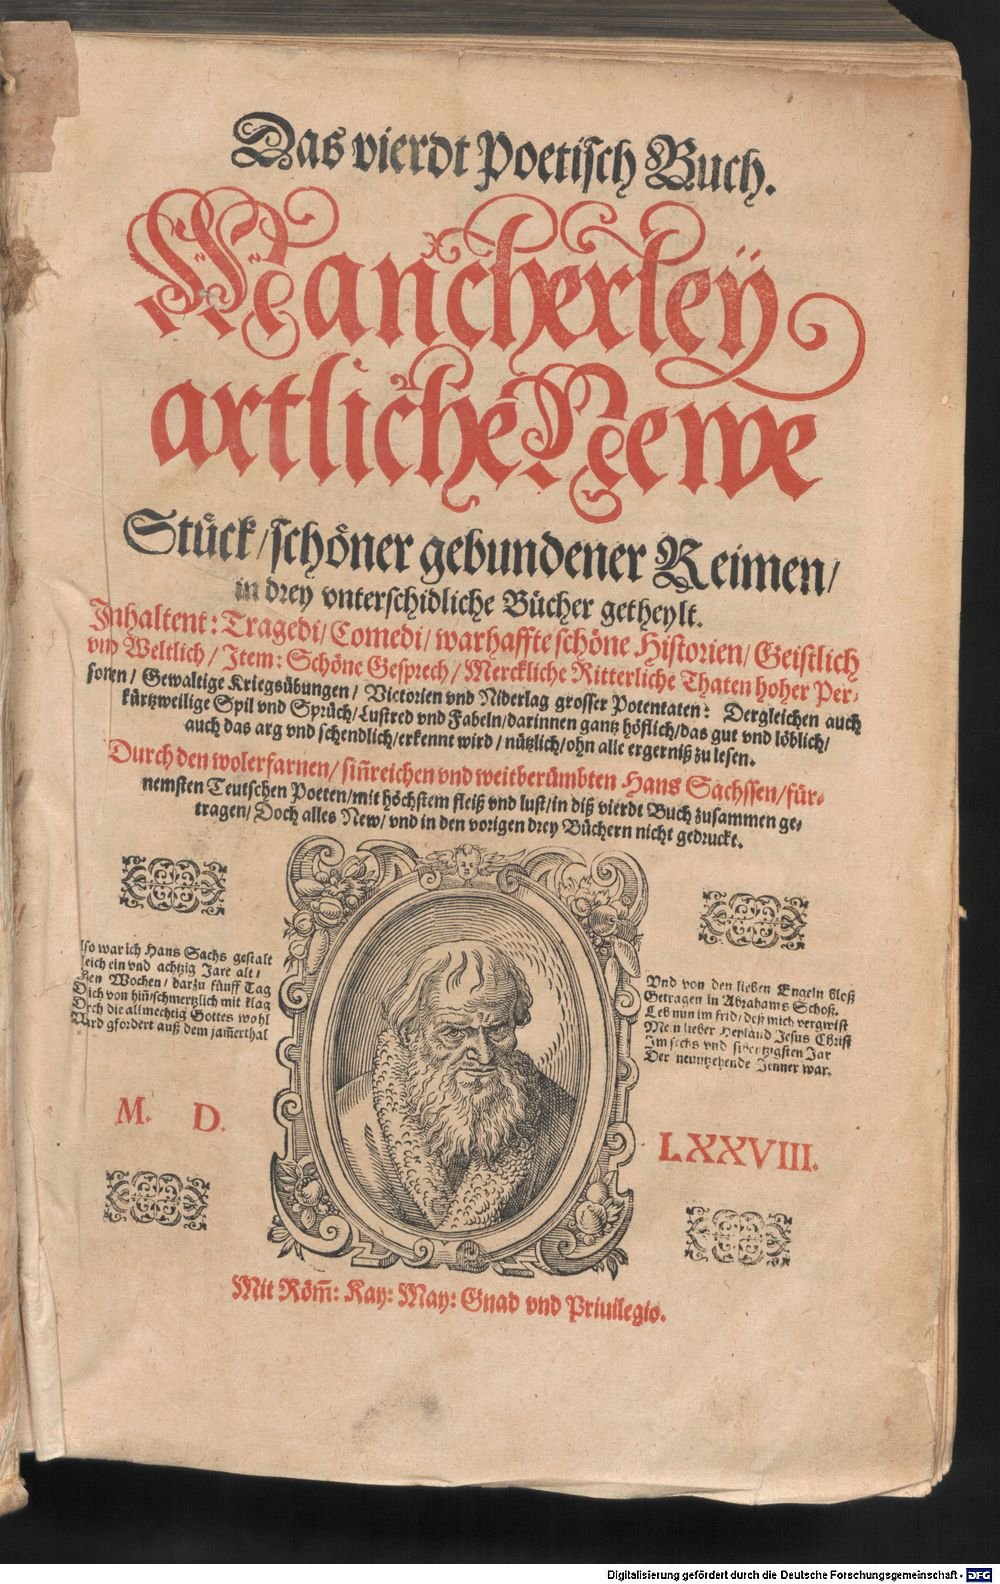 Das vierdt Poetisch Buch.
Mancherley
artliche Newe
Stück / schöner gebundener Reimen /
in drey vnterschidliche Bücher getheylt.
Inhaltent: Tragedi / Comedi / warhaffte schöne Historien / Geistlich
vnd Weltlich / Item: Schöne Gesprech / Merckliche Ritterliche Thaten hoher Per-
sonen / Gewaltige Kriegsübungen / Victorien vnd Niderlag grosser Potentaten: Dergleichen auch
kürtzweilige Spil vnd Sprüch / Lustred vnd Fabeln / darinnen gantz höflich / das gut vnd löblich /
auch das arg vnd schendlich / erkennt wird / nützlich / ohn alle ergerniß zu lesen.
Durch den wolerfarnen / sin̄reichen vnd weitberümbten Hans Sachssen / für-
nemsten Teutschen Poeten / mit höchstem fleiß vnd lust / in diß vierdt Buch zusammen ge-
tragen / Doch alles New / vnd in den vorigen drey Büchern nicht gedruckt.
lso war ich Hans Sachs gestalt
leich ein vnd achtzig Jare alt /
Wochen / darzu fünff Tag
ich von hin̄ / schmertzlich mit klag
rch die allmechtig Gottes wohl
Ward gfordert auß dem jam̄erthal
Vnd von den lieben Engeln bloß
Getragen in Abrahams Schoß.
Leb nun im frid / deß mich vergwist
Mein lieber Heyland Jesus Christ
Im sechs vnd sibentzigsten Jar
Der neuntzehende Jenner war.
M. D.
LXXVIII.
Mit Röm̄: Kay: May: Gnad vnd Priuilegio.
Digitalisierung gefördert durch die Deutsche Forschungsgemeinschaft - DFG